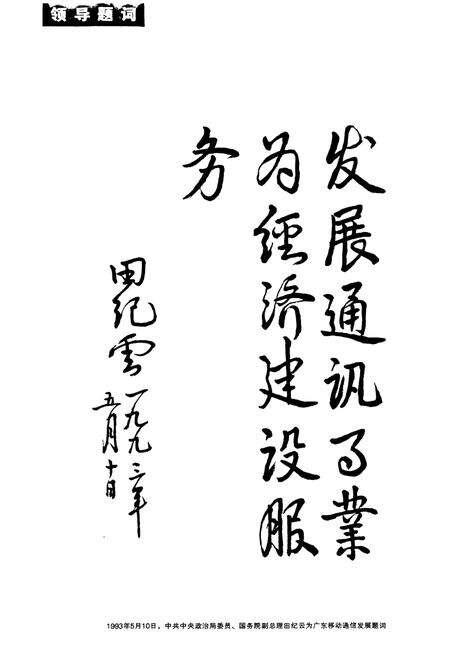 领导题词
发展通讯事业
为經济建设服
务
田纪雲
一九九三年
五月十日
1993年5月10日，中共中央政治局委员、国务院副总理田纪云为广东移动通信发展题词